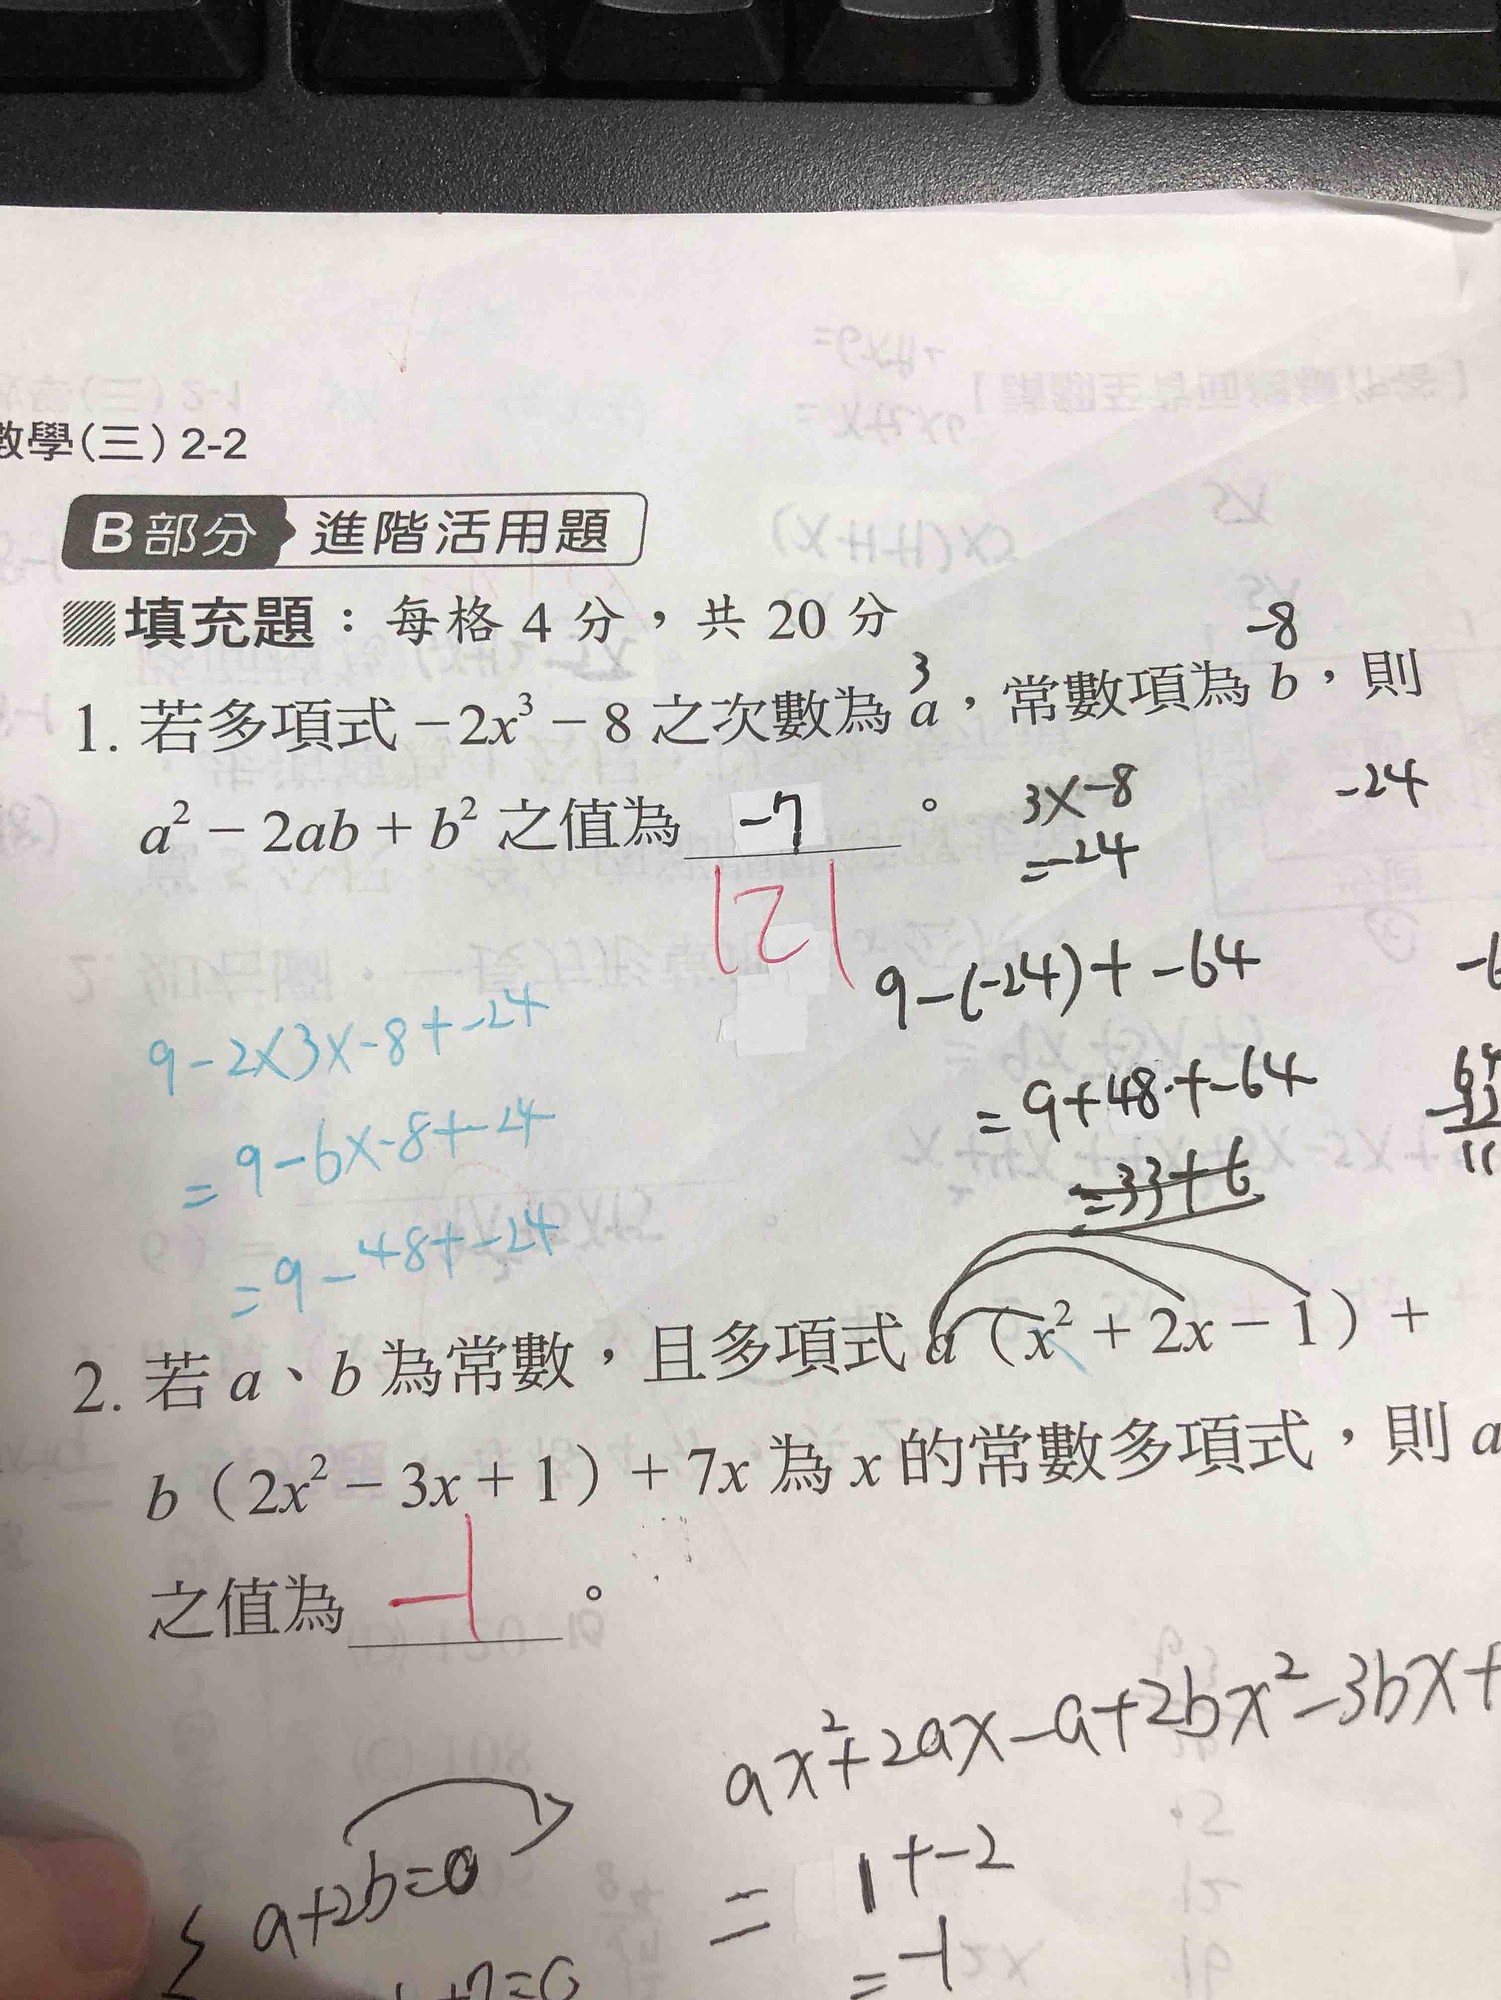 數學(三) 2-2
B部分 進階活用題
填充題：每格 4 分，共 20 分
-8
3
1. 若多項式 −2x³ − 8 之次數為 a，常數項為 b，則
a² − 2ab + b² 之值為 -7 。
121
3x-8
=-24
-24
9-(-24)+-64
=9+48+-64
=33+6
9-2x3x-8+-24
=9-6x-8+-24
=9-48+-24
2. 若 a、b 為常數，且多項式 a（x² + 2x − 1）+
b（2x² − 3x + 1）+ 7x 為 x 的常數多項式，則 a
之值為 -1 。
ax²+2ax-a+2bx²-3bx+
= 1+-2
=-1
a+2b=0
+7=0